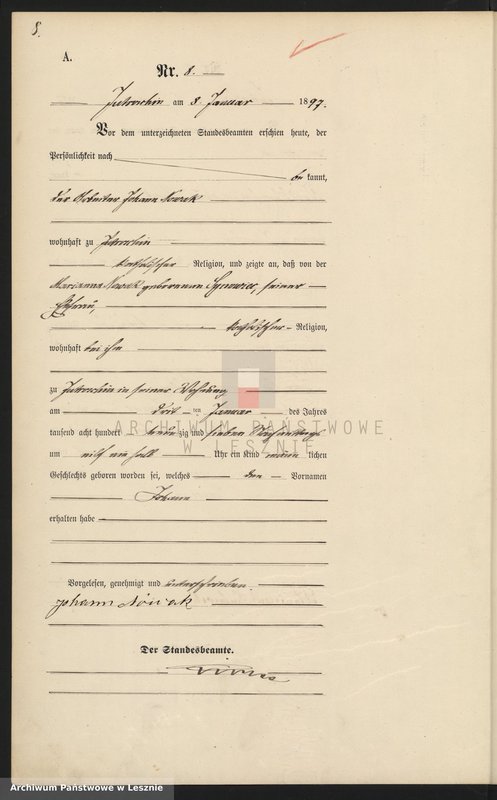 8.
A.
Nr. 8.
Jutroschin am 8. Januar 1897.
Vor dem unterzeichneten Standesbeamten erschien heute, der
Persönlichkeit nach
be kannt,
der Arbeiter Johann Nowak
wohnhaft zu Jutroschin
katholischer Religion, und zeigte an, daß von der
Marianna Nowak geborenen, seiner
Ehefrau,
katholischer Religion,
wohnhaft bei ihm
zu Jutroschin in seiner Wohnung
am drit ten Januar des Jahres
tausend acht hundert neun zig und sieben Nachmittags
um Uhr ein Kind männ lichen
Geschlechts geboren worden sei, welches den Vornamen
Johann
erhalten habe
Vorgelesen, genehmigt und unterschrieben
Johann Nowak
Der Standesbeamte.
ARCHIWUM PAŃSTWOWE
W LESZNIE
Archiwum Państwowe w Lesznie